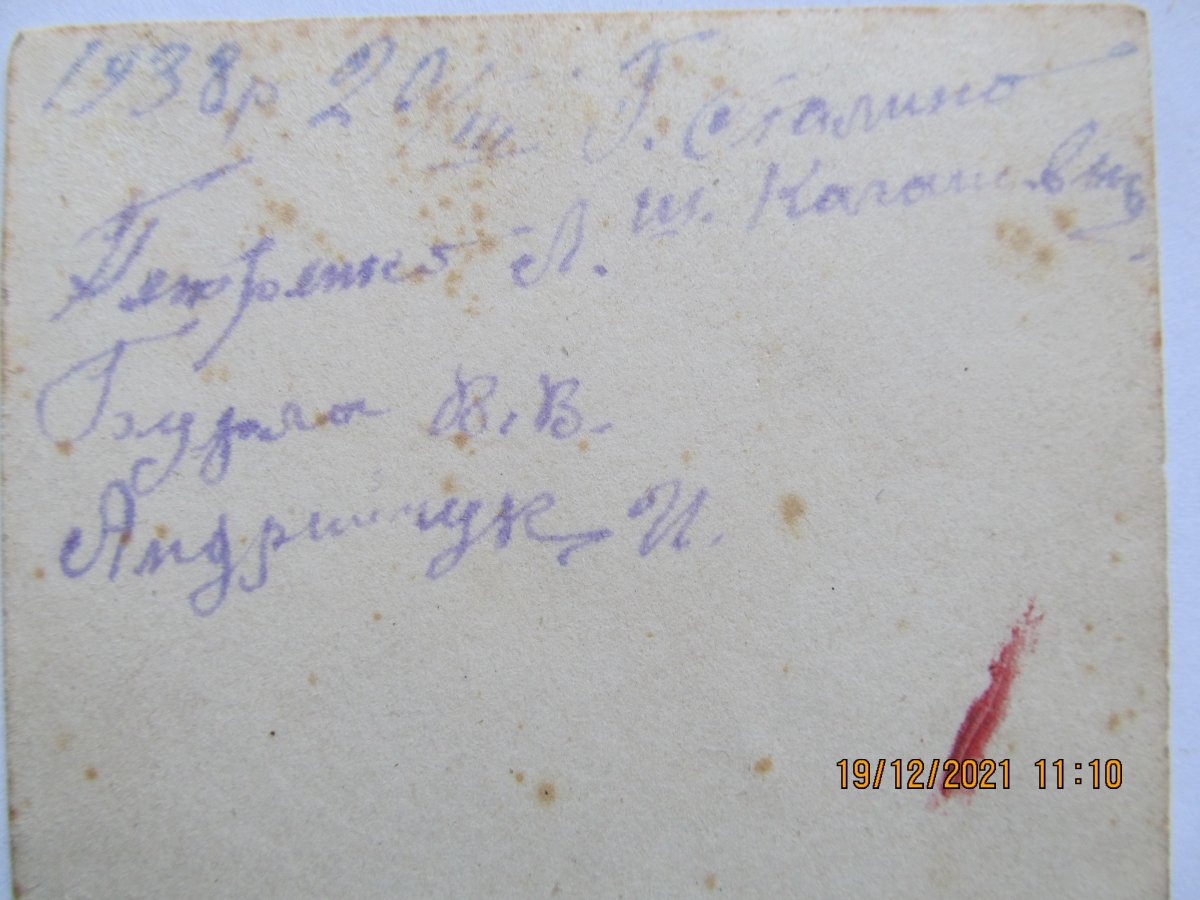 1938р 20/III Г. Сталино
Петренко А. ш.
В. В.
Андрийчук И.
19/12/2021 11:10